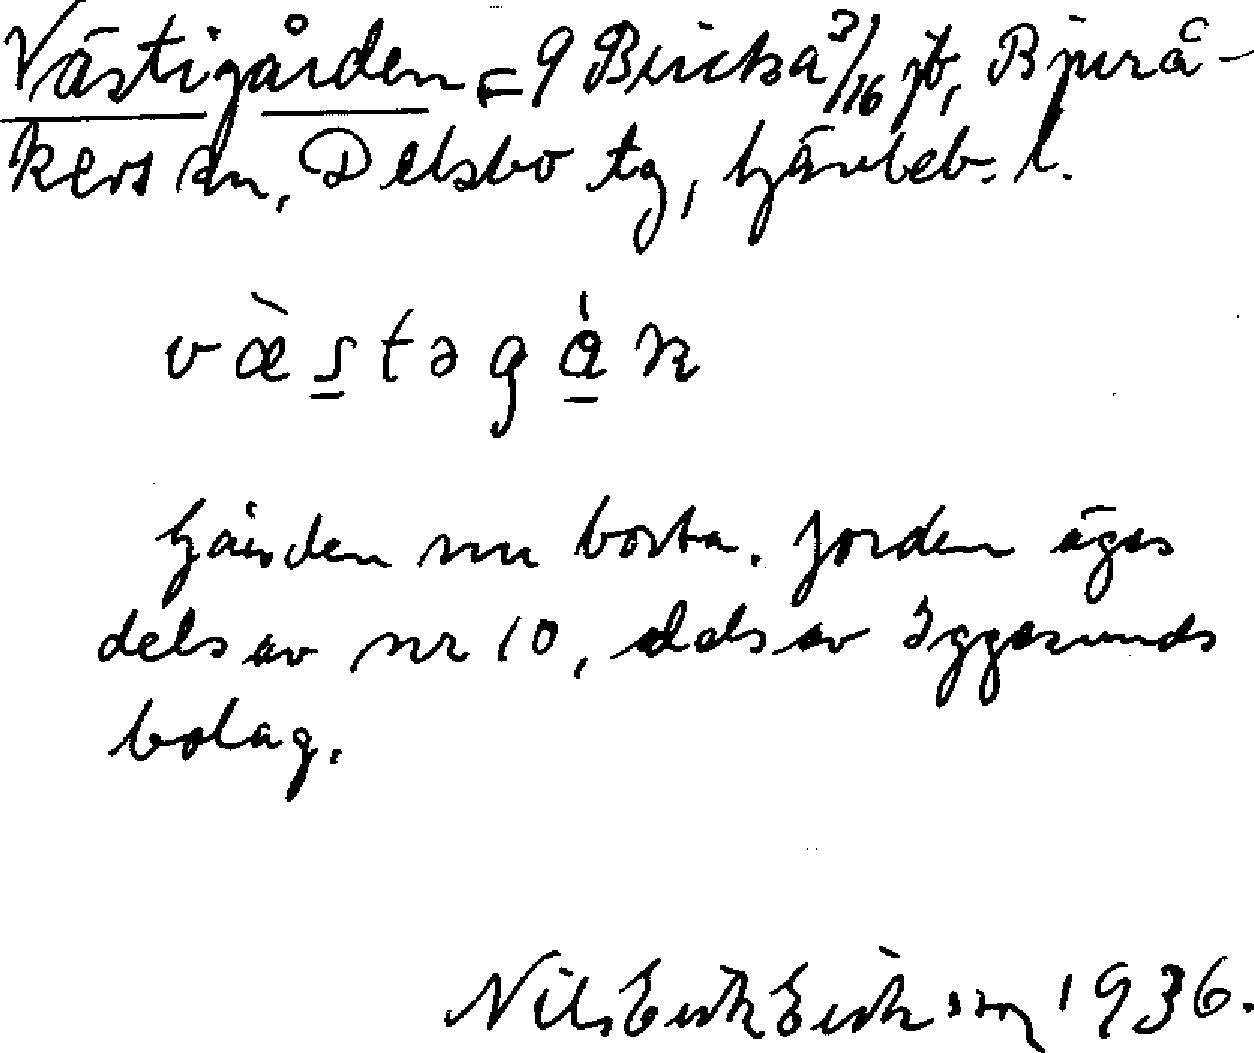 Västigården = 9 Bricka 3/16 jb, Bjurå-
kers sn, Delsbo tg, Gävleb. l.
væ̀s̲təgá̲n
Gården nu borta. Jorden äges
dels av nr 10, dels av Iggesunds
bolag.
Nils Erik Eriksson 1936.